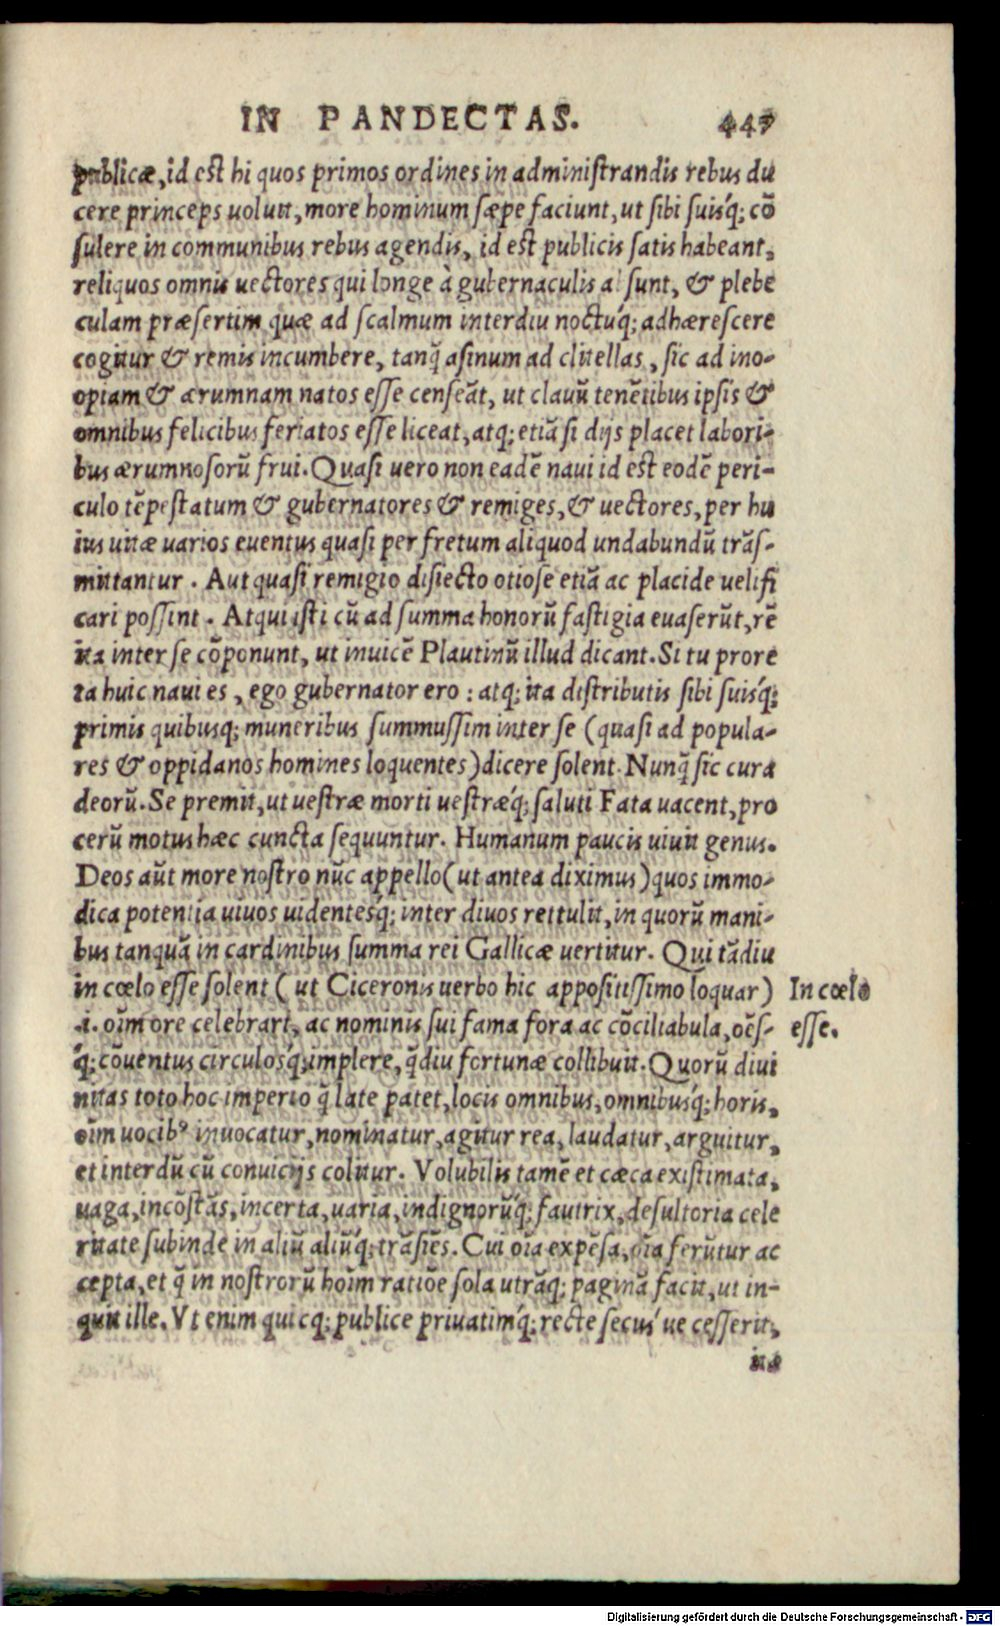 IN PANDECTAS. 447
publicæ, id est hi quos primos ordines in administrandis rebus du
cere princeps uoluit, more hominum sæpe faciunt, ut sibi suisq́; cō
sulere in communibus rebus agendis, id est publicis satis habeant,
reliquos omnis uectores qui longe à gubernaculis absunt, & plebe
culam præsertim quæ ad scalmum interdiu noctuq́; adhærescere
cogitur & remis incumbere, tanq̄ asinum ad clitellas, sic ad ino-
opiam & ærumnam natos esse censeāt, ut clauū tenētibus ipsis &
omnibus felicibus feriatos esse liceat, atq; etiā si dijs placet labori-
bus ærumnosorū frui. Quasi uero non eadē naui id est eodē peri-
culo tēpestatum & gubernatores & remiges, & uectores, per hu
ius uitæ varios euentus quasi per fretum aliquod undabundū trās-
mittantur. Aut quasi remigio disiecto otiose etiā ac placide uelifi
cari possint. Atqui isti cū ad summa honorū fastigia euaserūt, rē
ita inter se cōponunt, ut inuicē Plautinū illud dicant. Si tu prore
ta huic naui es, ego gubernator ero: atq; ita distributis sibi suisq́;
primis quibusq; muneribus summussim inter se (quasi ad popula-
res & oppidanos homines loquentes) dicere solent. Nunq̄ sic cura
deorū. Se premit, ut uestræ morti uestræq́; saluti Fata uacent, pro
cerū motus hæc cuncta sequuntur. Humanum paucis uiuit genus.
Deos aūt more nostro nūc appello (ut antea diximus) quos immo-
dica potentia uiuos uidentesq́; inter diuos rettulit, in quorū mani-
bus tanquā in cardinibus summa rei Gallicæ uertitur. Qui tādiu
in cœlo esse solent (ut Ciceronis uerbo hic appositissimo loquar) In cœlo
.i. oīm ore celebrari, ac nominis sui fama fora ac cōciliabula, oēs- esse.
q́; cōuentus circulosq́; implere, q̄diu fortunæ collibuit. Quorū diui
nitas toto hoc imperio q̄ late patet, locis omnibus, omnibusq́; horis,
oīm uocibꝰ inuocatur, nominatur, agitur rea, laudatur, arguitur,
et interdū cū conuicijs colitur. Volubilis tamē et cæca existimata,
uaga, incōstās, incerta, uaria, indignorūq́; fautrix, desultoria cele
ritate subinde in aliū aliūq́; trāsiēs. Cui oīa expēsa, oīa ferūtur ac
cepta, et q̄ in nostrorū hoīm ratiōe sola utrāq; paginā facit, ut in-
quit ille. Vt enim quicq; publice priuatimq́; recte secus´ue cesserit,
ita
Digitalisierung gefördert durch die Deutsche Forschungsgemeinschaft - DFG